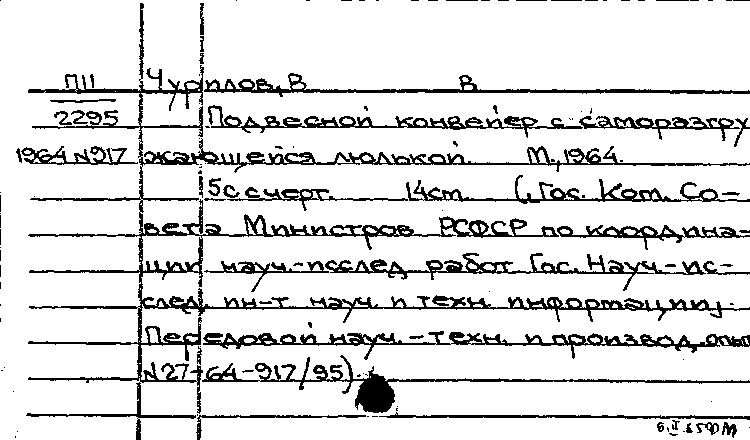 ПII Чурилов, В В
2295 Подвесной конвейер с саморазгру
1964 N917 жающейся люлькой. М., 1964.
5с с черт. 14см. (Гос. Ком. Со-
вета Министров РСФСР по координа-
ции науч.-исслед работ Гос. Науч.-ис-
след. ин-т науч. и техн информации.
Передовой науч.-техн. и производ. опыт
N27-64-917/95)